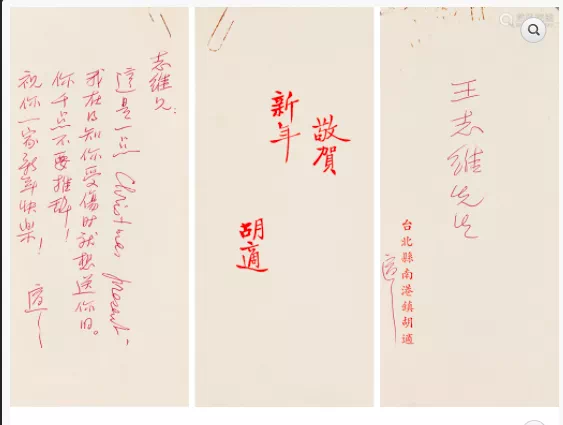 志維兄:
這是一點 Christmas present,
我在知你受傷時就想送你的。
你千万不要推辭!
祝你一家新年快樂!
適
敬賀
新年
胡適
王志維先生
台北縣南港鎮胡適
適